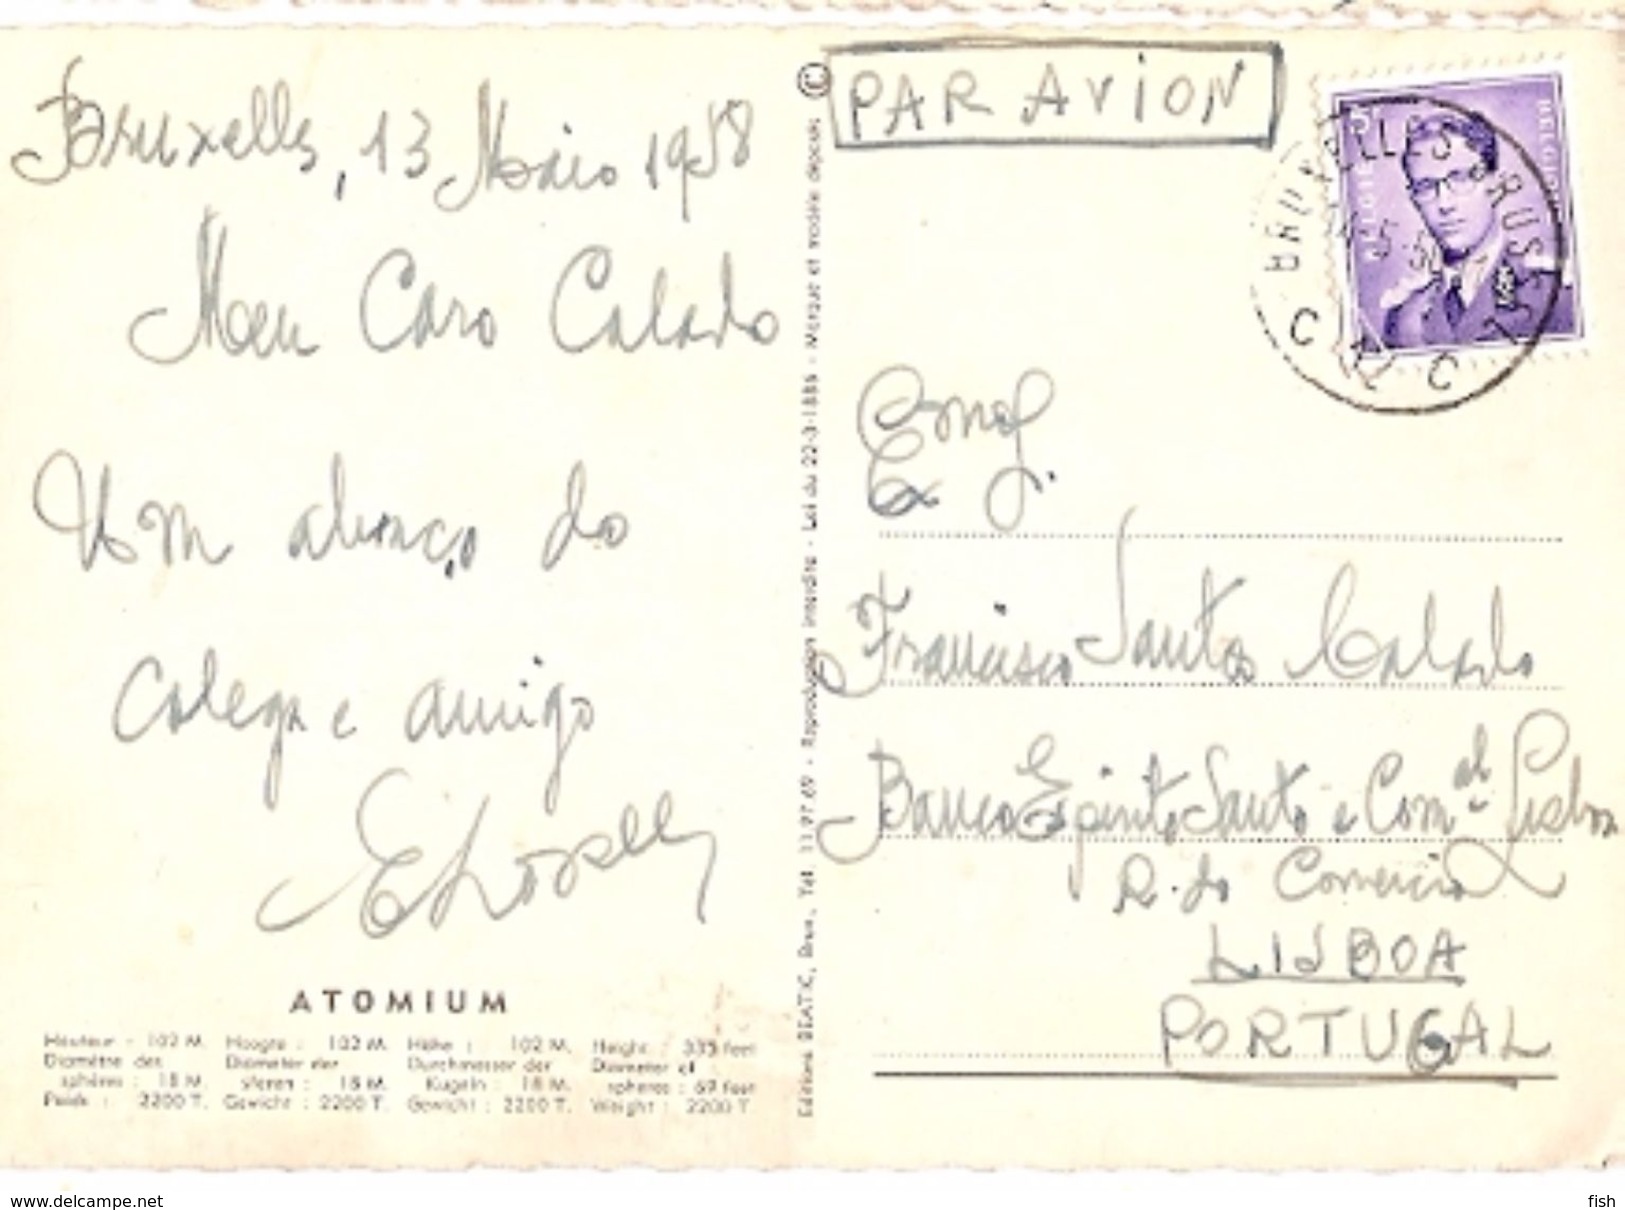 Bruxelles, 13 Maio 1958
Meu Caro Calado
Um abraço do
colega e amigo
ATOMIUM
Hauteur : 102 M.
Diamètre des
sphères : 18 M.
Poids : 2200 T.
Hoogte : 102 M.
Diameter der
sferen : 18 M.
Gewicht : 2200 T.
Höhe : 102 M.
Durchmesser der
Kugeln : 18 M.
Gewicht : 2200 T.
Height : 335 feet
Diameter of
spheres : 59 feet
Weight : 2200 T.
Editions BEATIC, Brux., Tél. 11.97.69 - Reproduction interdite - Loi du 22-3-1886 - Marque et modèle déposés ©
PAR AVION
BELGIE
BELGIQUE
BRUXELLES BRUSSEL
Exmo.
Francisco Santos Calado
Banco Espirito Santo e Comal. Lisboa
R. do Comercio
LISBOA
PORTUGAL
www.delcampe.net
fish